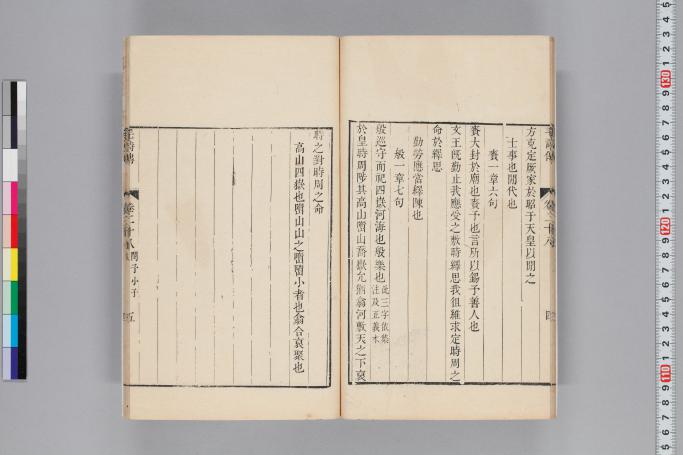 方克定厥家於昭于天皇以閒之
士事也閒代也
賚一章六句
賚大封於廟也賚予也言所以錫予善人也
文王旣勤止我應受之敷時繹思我徂維求定時周之
命於繹思
勤勞應當繹陳也
般一章七句
般巡守而祀四嶽河海也般樂也此三字依集注及正義本
於皇時周陟其高山嶞山喬嶽允猶翕河敷天之下裒
時之對時周之命
高山四嶽也嶞山山之嶞嶞小者也翁合裒聚也
毛詩傳
卷二十八
閔予小子
五